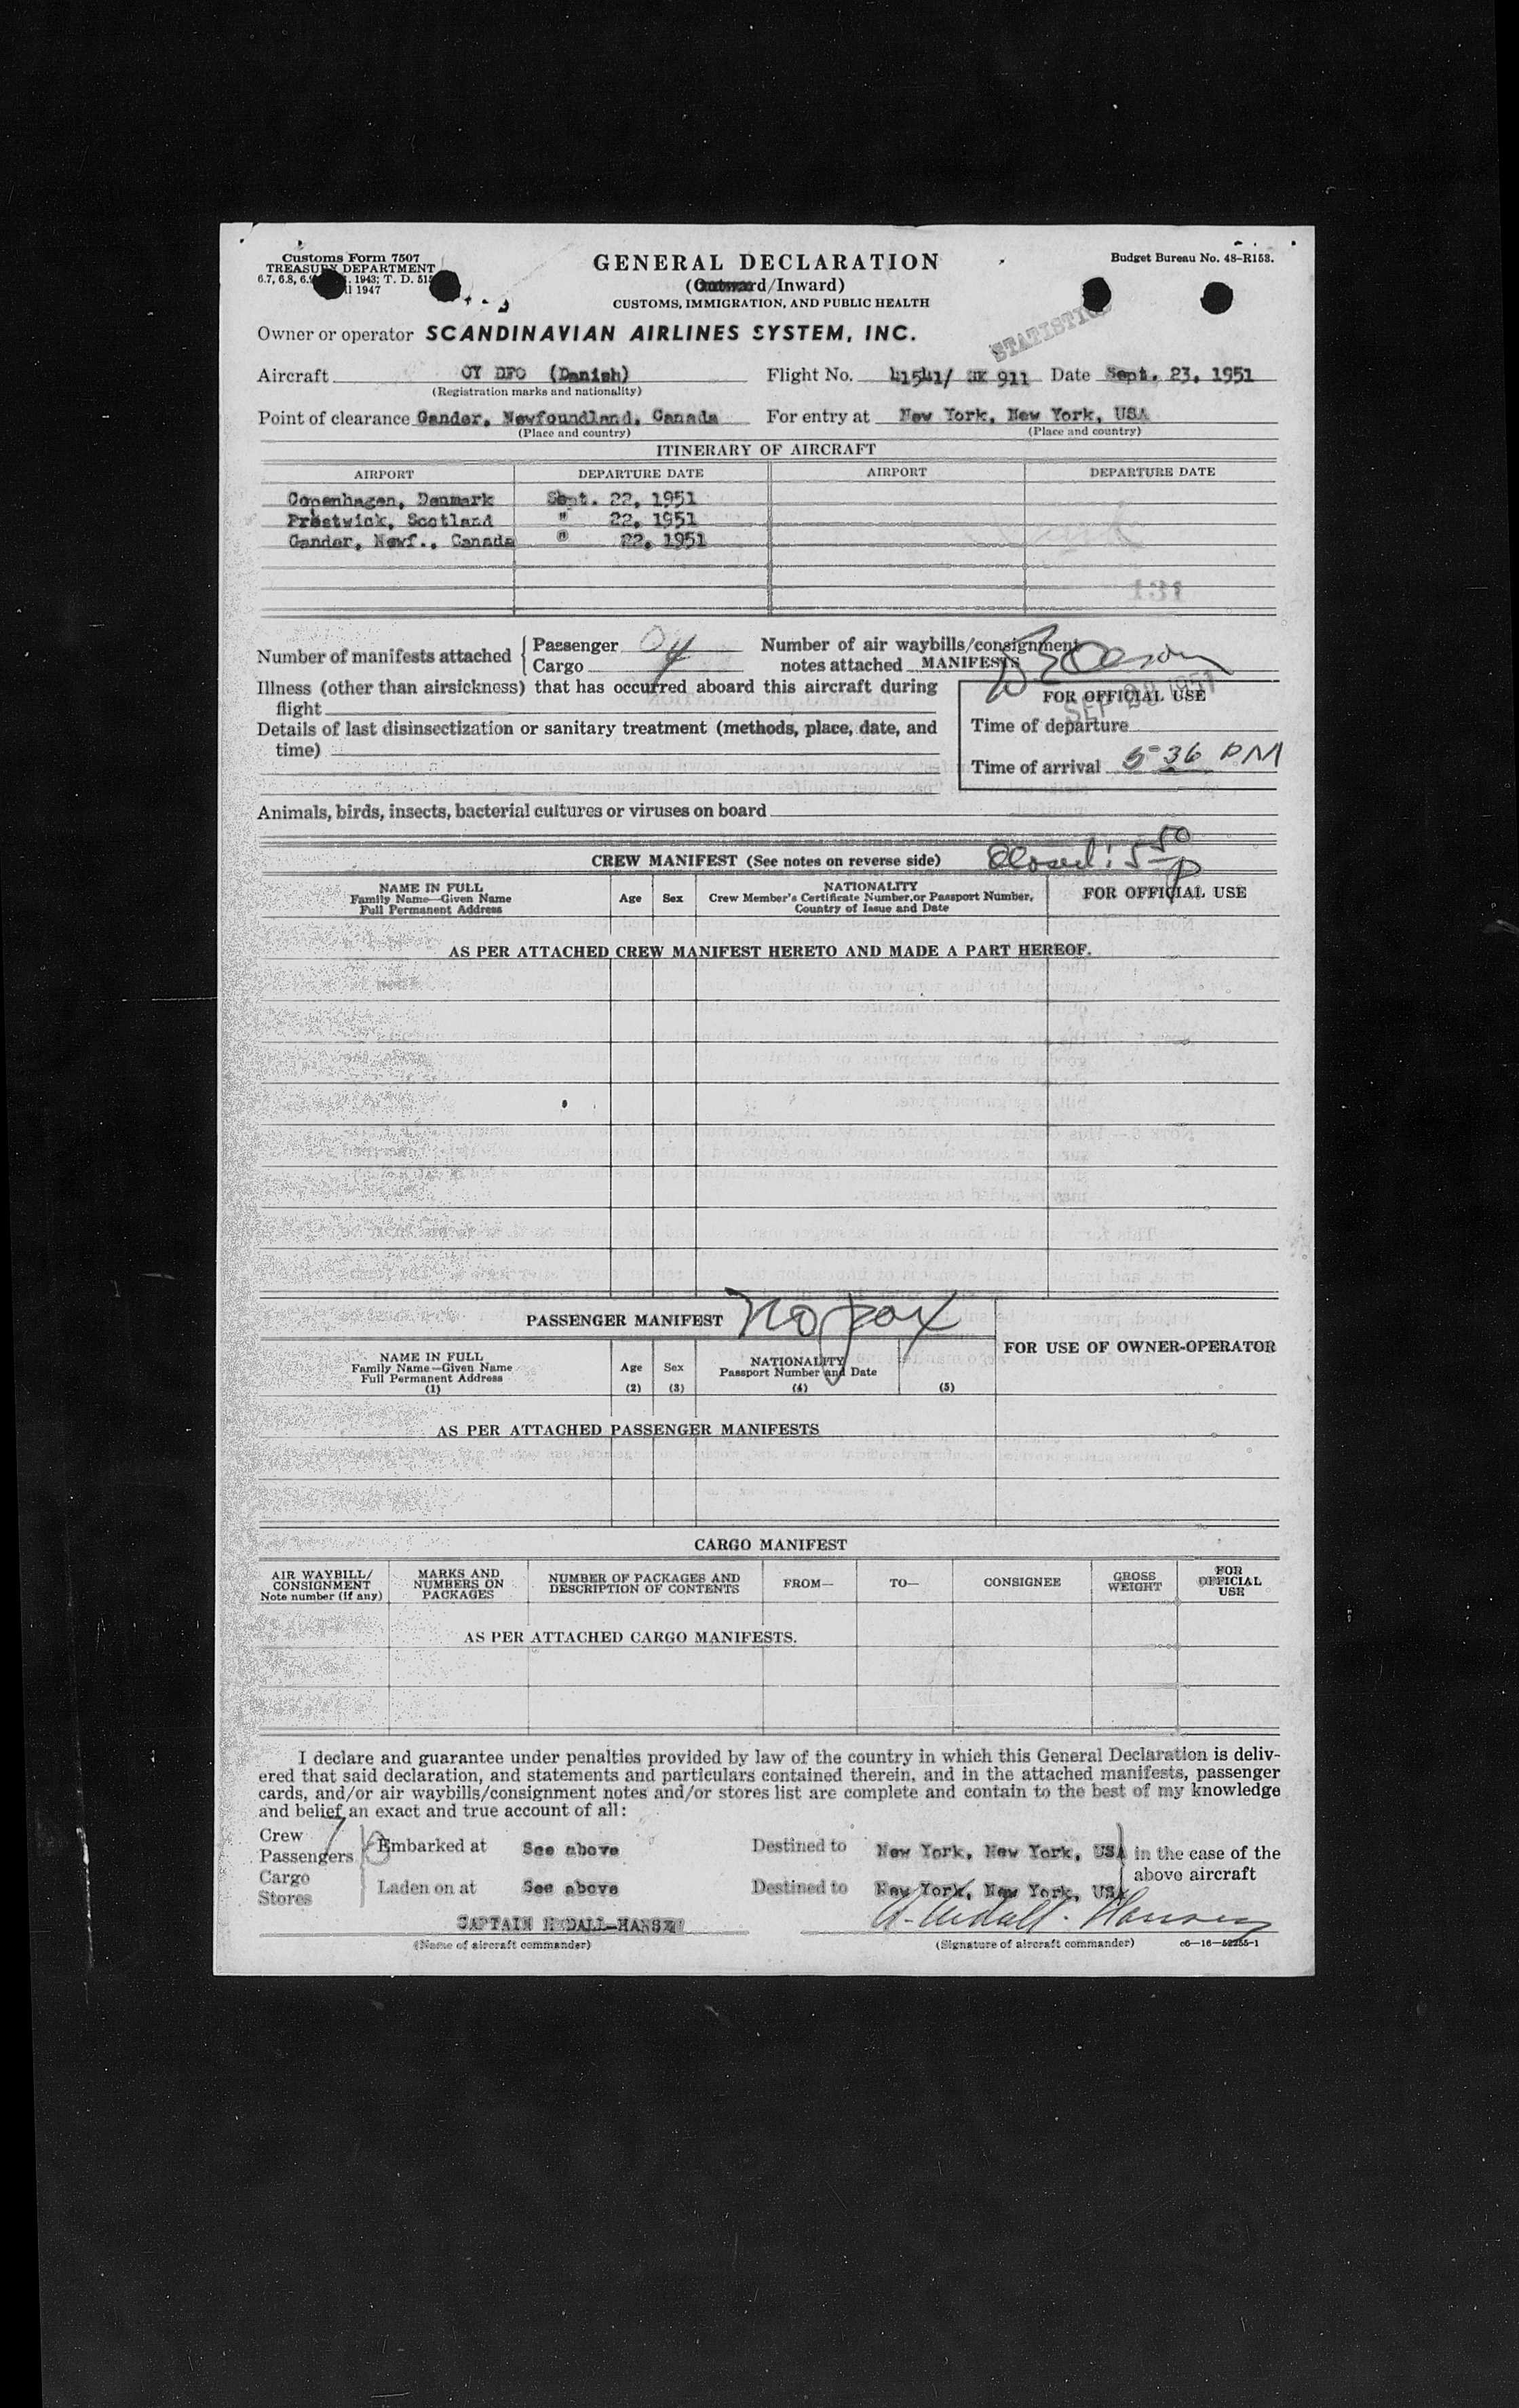 Customs Form 7507
TREASURY DEPARTMENT
6.7, 6.8, 1943; T. D.
1947
GENERAL DECLARATION
(Outward/Inward)
CUSTOMS, IMMIGRATION, AND PUBLIC HEALTH
Budget Bureau No. 48-R153.
STATISTICS
Owner or operator SCANDINAVIAN AIRLINES SYSTEM, INC.
Aircraft OY DFO (Danish) Flight No. 41541/ SK 911 Date Sept. 23, 1951
(Registration marks and nationality)
Point of clearance Gander, Newfoundland, Canada For entry at New York, New York, USA
(Place and country) (Place and country)
ITINERARY OF AIRCRAFT
AIRPORT DEPARTURE DATE AIRPORT DEPARTURE DATE
Copenhagen, Denmark Sept. 22, 1951
Prestwick, Scotland " 22, 1951
Gander, Newf., Canada " 22, 1951
131
Number of manifests attached { Passenger 0 Number of air waybills/consignment
Cargo 4 notes attached MANIFESTS
Illness (other than airsickness) that has occurred aboard this aircraft during
flight
FOR OFFICIAL USE
SEP 1951
Details of last disinsectization or sanitary treatment (methods, place, date, and
time)
Time of departure
Time of arrival 5 36 PM
Animals, birds, insects, bacterial cultures or viruses on board
CREW MANIFEST (See notes on reverse side) Closed: 5 50 p
NAME IN FULL
Family Name—Given Name
Full Permanent Address
Age Sex
NATIONALITY
Crew Member's Certificate Number, or Passport Number,
Country of Issue and Date
FOR OFFICIAL USE
AS PER ATTACHED CREW MANIFEST HERETO AND MADE A PART HEREOF.
PASSENGER MANIFEST No pax
FOR USE OF OWNER-OPERATOR
NAME IN FULL
Family Name—Given Name
Full Permanent Address
(1)
Age
(2)
Sex
(3)
NATIONALITY
Passport Number and Date
(4) (5)
AS PER ATTACHED PASSENGER MANIFESTS
CARGO MANIFEST
AIR WAYBILL/
CONSIGNMENT
Note number (if any)
MARKS AND
NUMBERS ON
PACKAGES
NUMBER OF PACKAGES AND
DESCRIPTION OF CONTENTS
FROM—
TO—
CONSIGNEE
GROSS
WEIGHT
FOR
OFFICIAL
USE
AS PER ATTACHED CARGO MANIFESTS.
I declare and guarantee under penalties provided by law of the country in which this General Declaration is deliv-
ered that said declaration, and statements and particulars contained therein, and in the attached manifests, passenger
cards, and/or air waybills/consignment notes and/or stores list are complete and contain to the best of my knowledge
and belief an exact and true account of all:
Crew 7
Passengers 0
Cargo
Stores
Embarked at See above Destined to New York, New York, USA
Laden on at See above Destined to New York, New York, USA
in the case of the
above aircraft
CAPTAIN NEDALL-HANSEN
(Name of aircraft commander) (Signature of aircraft commander) c6—16—52255-1